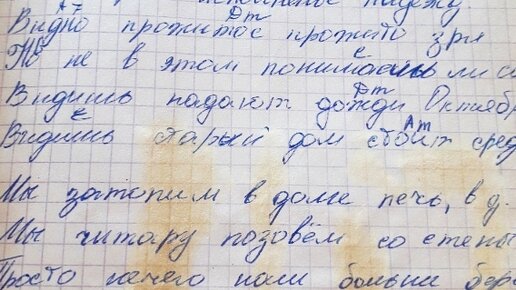 A7 исполненье надежд
Видно прожитое прожито зря
Dm
Но не в этом понимаешь ли с
C
Видишь падают дожди Октябр
Dm
Видишь старый дом стоит сред
E Am
Мы затопим в доме печь, в д.
Мы гитару позовём со стены
Просто нечего нам больше бер